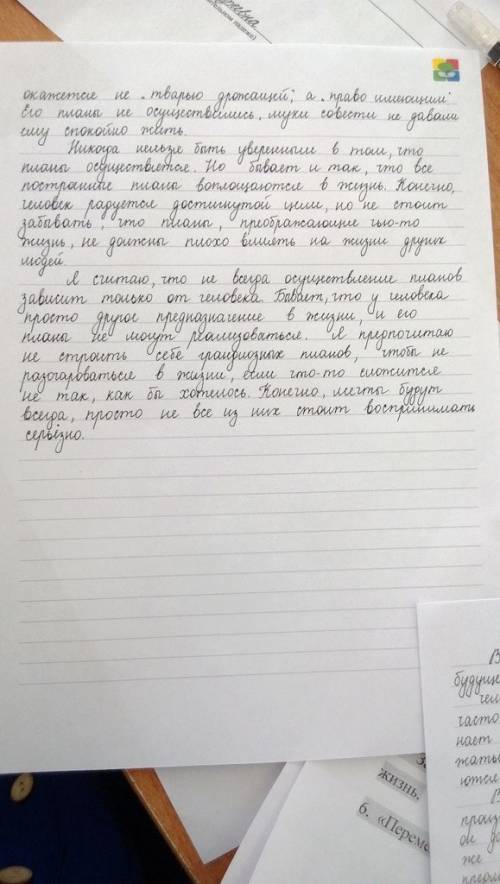 окажется не „тварью дрожащей", а „право имеющим".
Его планы не осуществились, муки совести не давали
ему спокойно жить.
Никогда нельзя быть уверенными в том, что
планы осуществятся. Но бывает и так, что все
построенные планы воплощаются в жизнь. Конечно,
человек радуется достигнутой цели, но не стоит
забывать, что планы, преображающие чью-то
жизнь, не должны плохо влиять на жизни других
людей.
Я считаю, что не всегда осуществление планов
зависит только от человека. Бывает, что у человека
просто другое предназначение в жизни, и его
планы не могут реализоваться. Я предпочитаю
не строить себе грандиозных планов, чтобы не
разочароваться в жизни, если что-то сложится
не так, как бы хотелось. Конечно, мечты будут
всегда, просто не все из них стоит воспринимать
серьёзно.
В
будуще
чел
часто
нает
жать
ются
В
произ
он до
же
преоб
жизнь.
6. «Переме